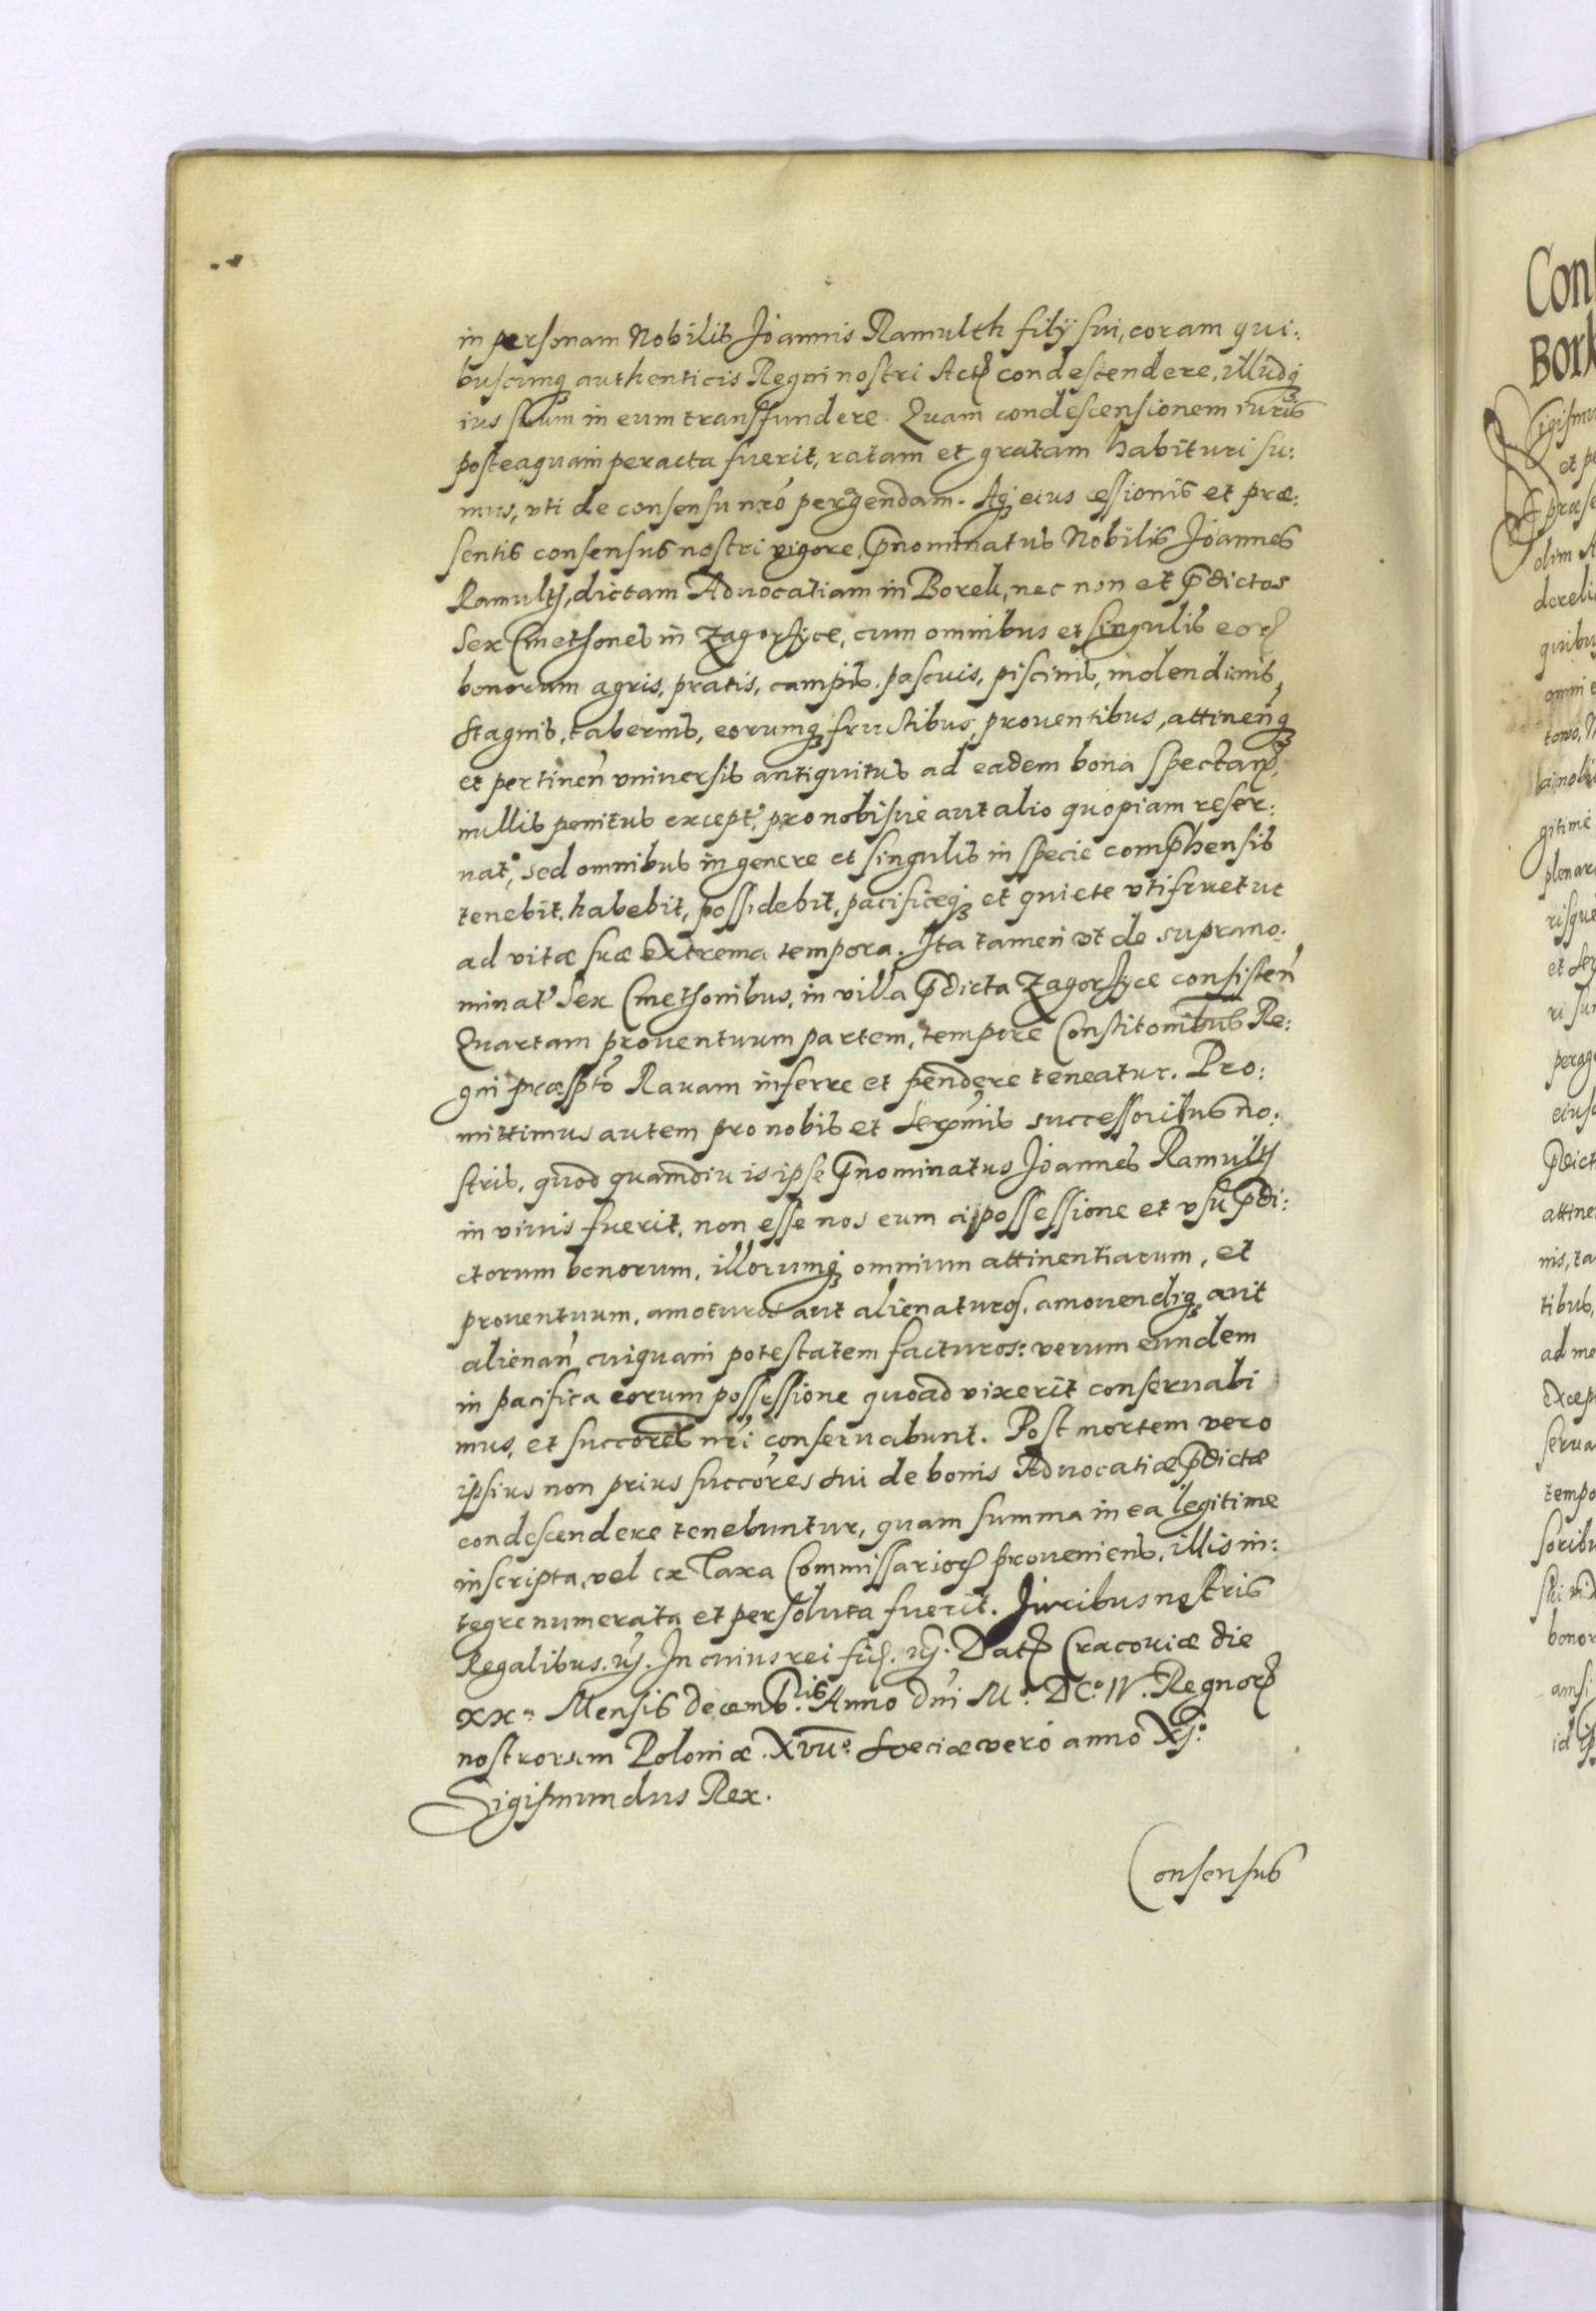 in personam Nobilis Joannis Ramulth filÿ sui, coram qui:
buscunqꝫ authenticis Regni nostri Actꝭ condescendere, illudqꝫ
ius suum in eum transfundere. Quam condescensionem iuris
posteaquam peracta fuerit, ratam et gratam habituri su:
mus, vti de consensu nr̃o peragendam. Aqꝫ eius cessionis et præ:
sentis consensus nostri vigore, p̃nominatus Nobilis Joannes
Ramultꝭ, dictam Aduocatiam in Borek, nec non et p̃dictos
Sex Cmethones in Zagorzÿce, cum omnibus et singulis eorꝭ
bonorum agris, pratis, campis, pascuis, piscinis, molendinis,
stagnis, tabernis, eorumqꝫ fructibus, prouentibus, attinen̄qꝫ
et pertinen̄ vniuersis antiquitus ad eadem bona spectanꝭ,
nullis penitus except̓, pro nobisue aut alio quopiam reser:
uat̓, sed omnibus in genere et singulis in specie comp̃hensis
tenebit, habebit, possidebit, pacificeqꝫ et quiete vtifruetur
ad vitæ suæ extrema tempora. Ita tamen vt de suprano:
minat̓ Sex Cmethonibus, in villa p̃dicta Zagorzÿce consisten̄
Quartam prouentuum partem, tempore Constitonibus Re:
gni præspto Rauam inferre et pendere teneatur. Pro:
mittimus autem pro nobis et Serp̃mis successoribus no:
stris, quod quamdiu is ipse p̃nominatus Joannes Ramultꝭ
in viuis fuerit, non esse nos eum a possessione et vsu p̃di:
ctorum bonorum, illorumqꝫ omnium attinentiarum, et
prouentuum, amoturos aut alienaturos, amouendiqꝫ aut
alienan̄ cuiquam potestatem facturos: verum eundem
in pacifica eorum possessione quoad vixerit conseruabi
mus, et succores nr̃i conseruabunt. Post mortem vero
ipsius non prius succores sui de bonis Aduocatiæ p̃dictæ
condescendere tenebuntur, quam summa in ea legitime
inscripta, vel ex Taxa Commissariorꝭ proueniens, illis in:
tegre numerata et persoluta fuerit. Juribus nostris
Regalibus. ꝛc̃. In cuius rei fiꝭ. ꝛc̃. Datꝭ Cracouiæ die
xxa Mensis decembris Anno dn̄i Mo. DCo. IV. Regnorꝭ
nostrorum Poloniæ. XVIIo. Sveciæ vero anno XIo.
Sigismundus Rex.
Consensus